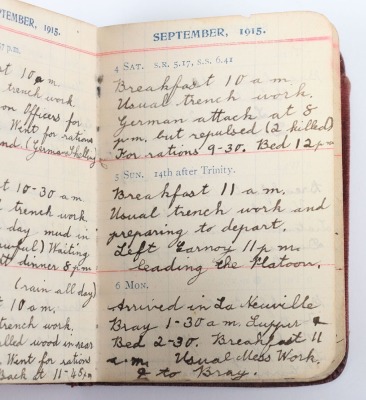 PTEMBER, 1915.
7 p.m.
10 a m
trench work
on Officers for
Went for rations
(German Shelling
10-30 am
trench work.
day mud in
awful) Waiting
dinner 8 pm
(rain all day)
10 a m.
trench work.
wood in rear
Went for rations
Back at 11-45 pm
SEPTEMBER, 1915.
4 SAT. S.R. 5.17, S.S. 6.41
Breakfast 10 a m.
Usual trench work.
German attack at 8
p.m. but repulsed (2 killed)
For rations 9-30. Bed 12 pm
5 SUN. 14th after Trinity.
Breakfast 11 a.m.
Usual trench work and
preparing to depart.
Left Carnoy 11 p m
leading the Platoon.
6 MON.
Arrived in La Neuville
Bray 1-30 a.m. Supper &
Bed 2-30. Breakfast 11
a.m. Usual Mess Work.
to Bray.